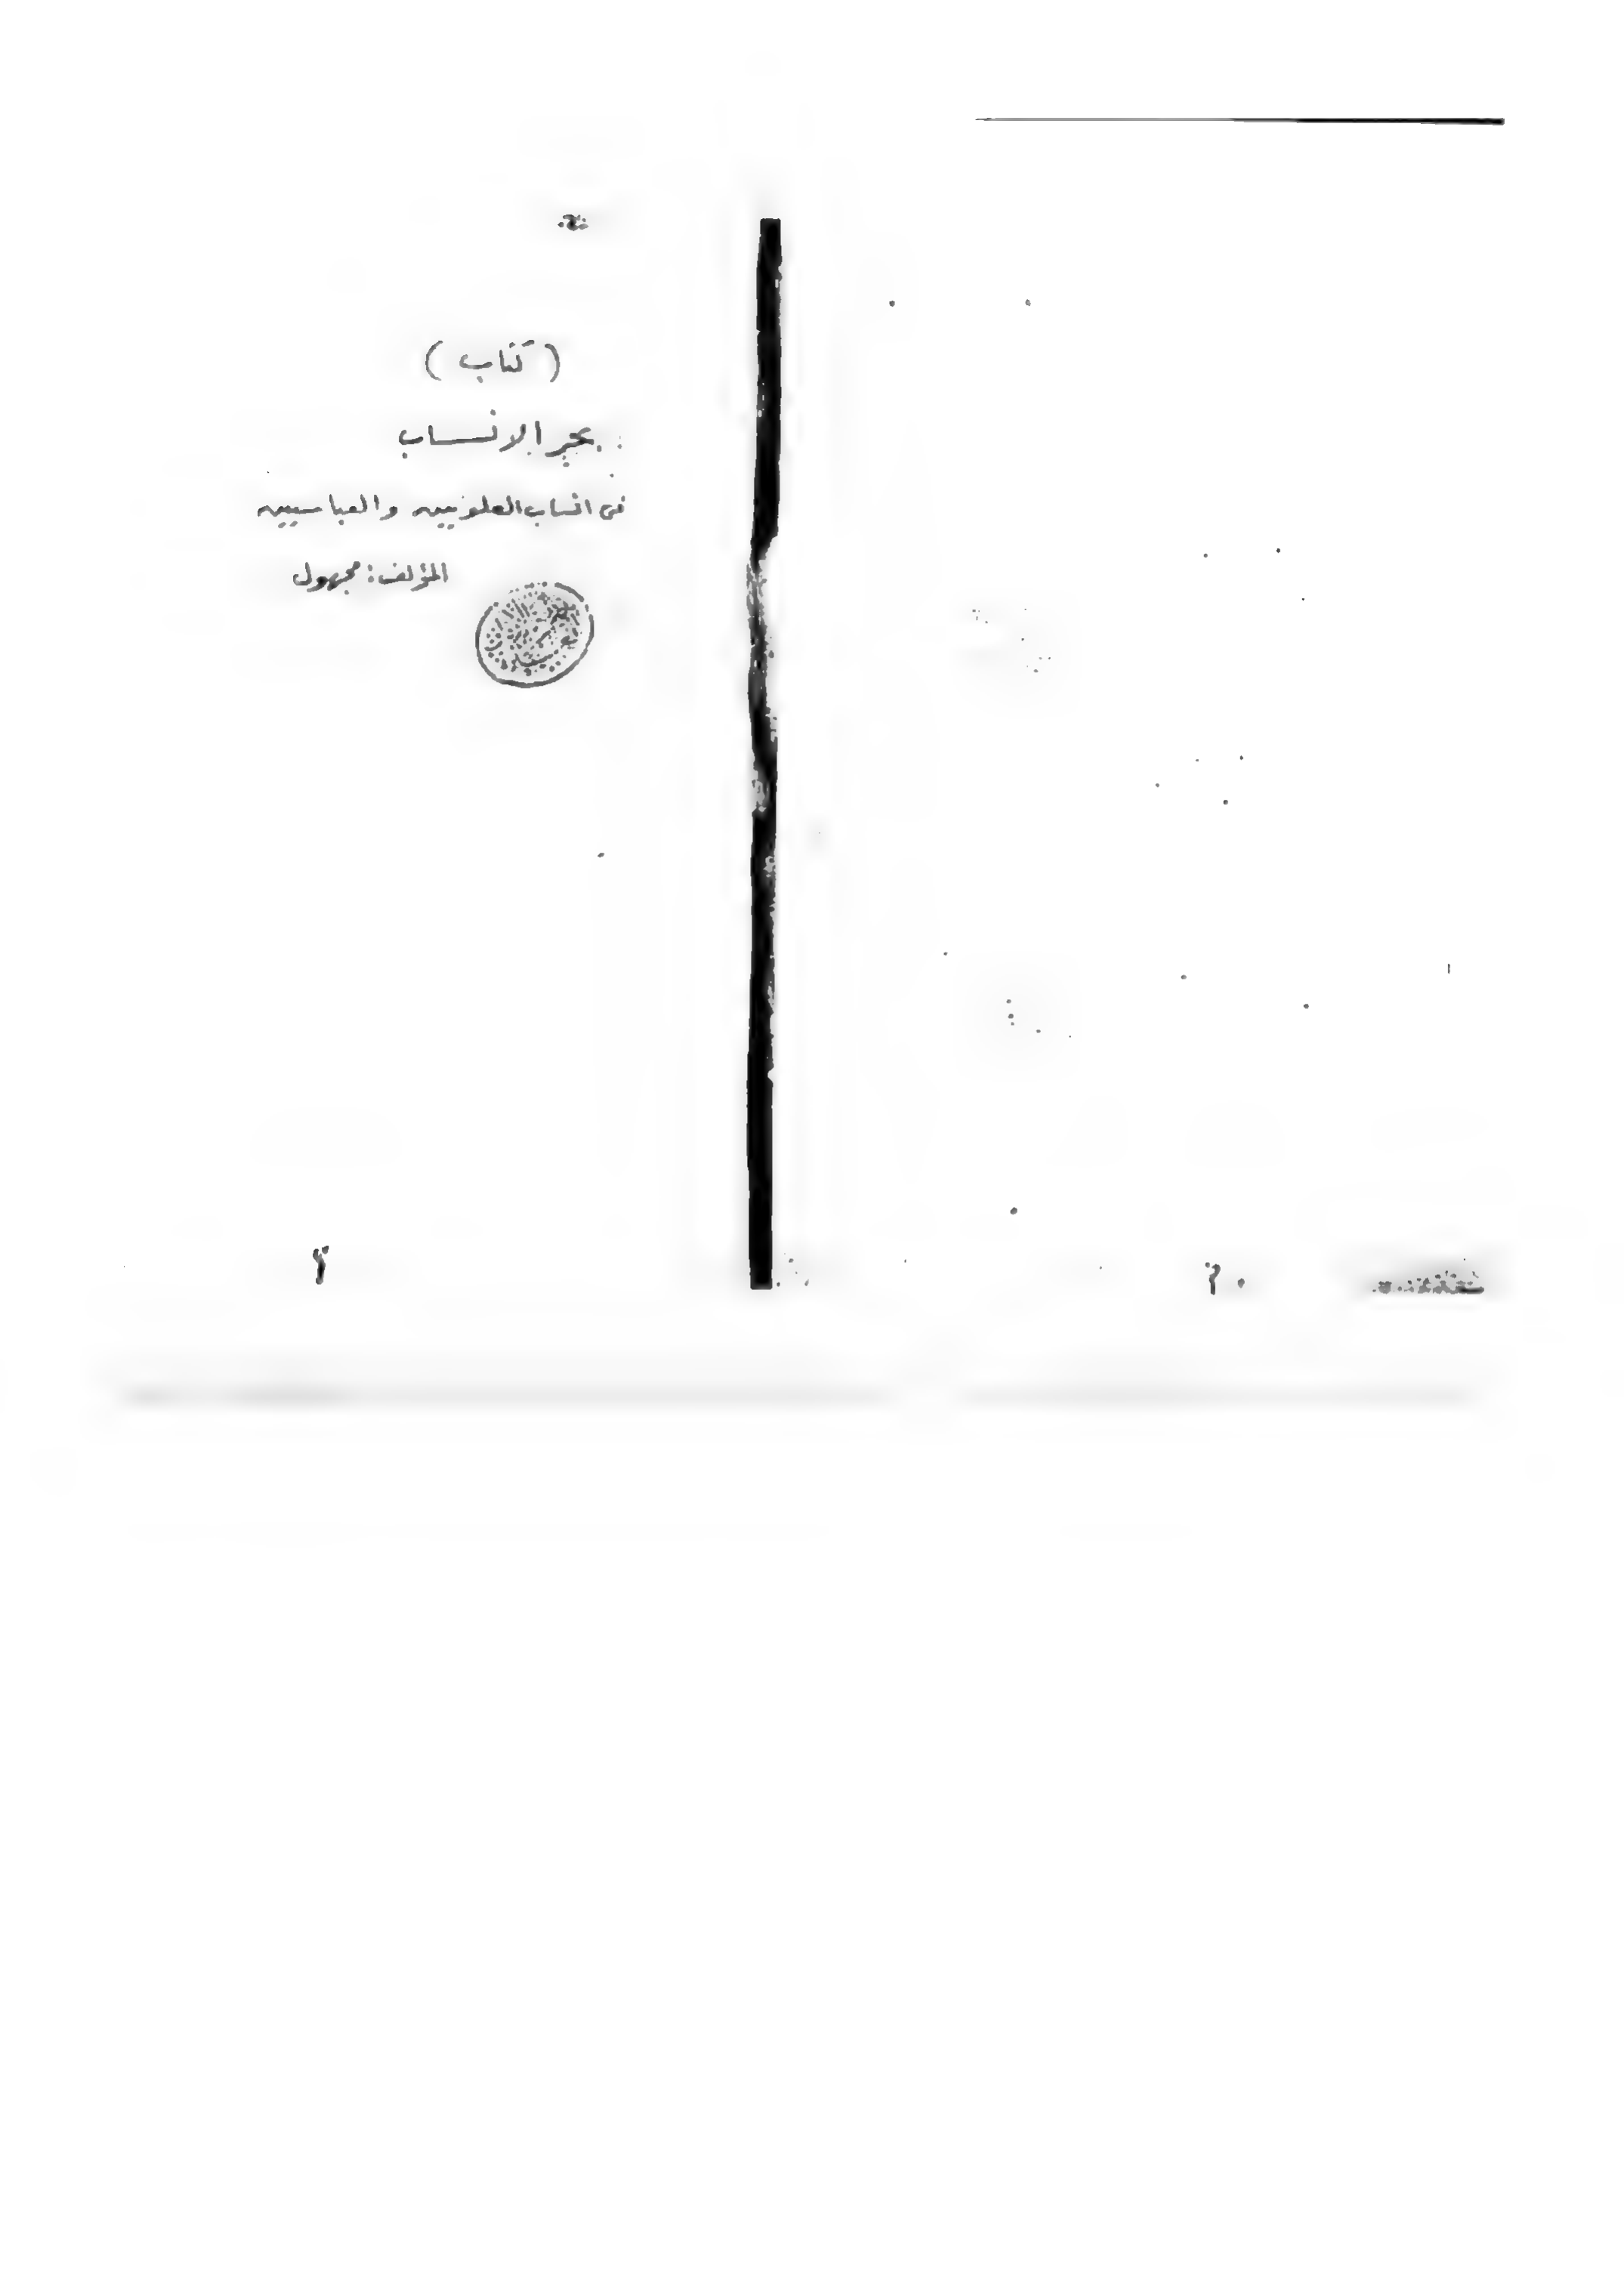 ( كتاب )
بحر الانساب
فى انساب العلويين والعباسيين
المؤلف : مجهول